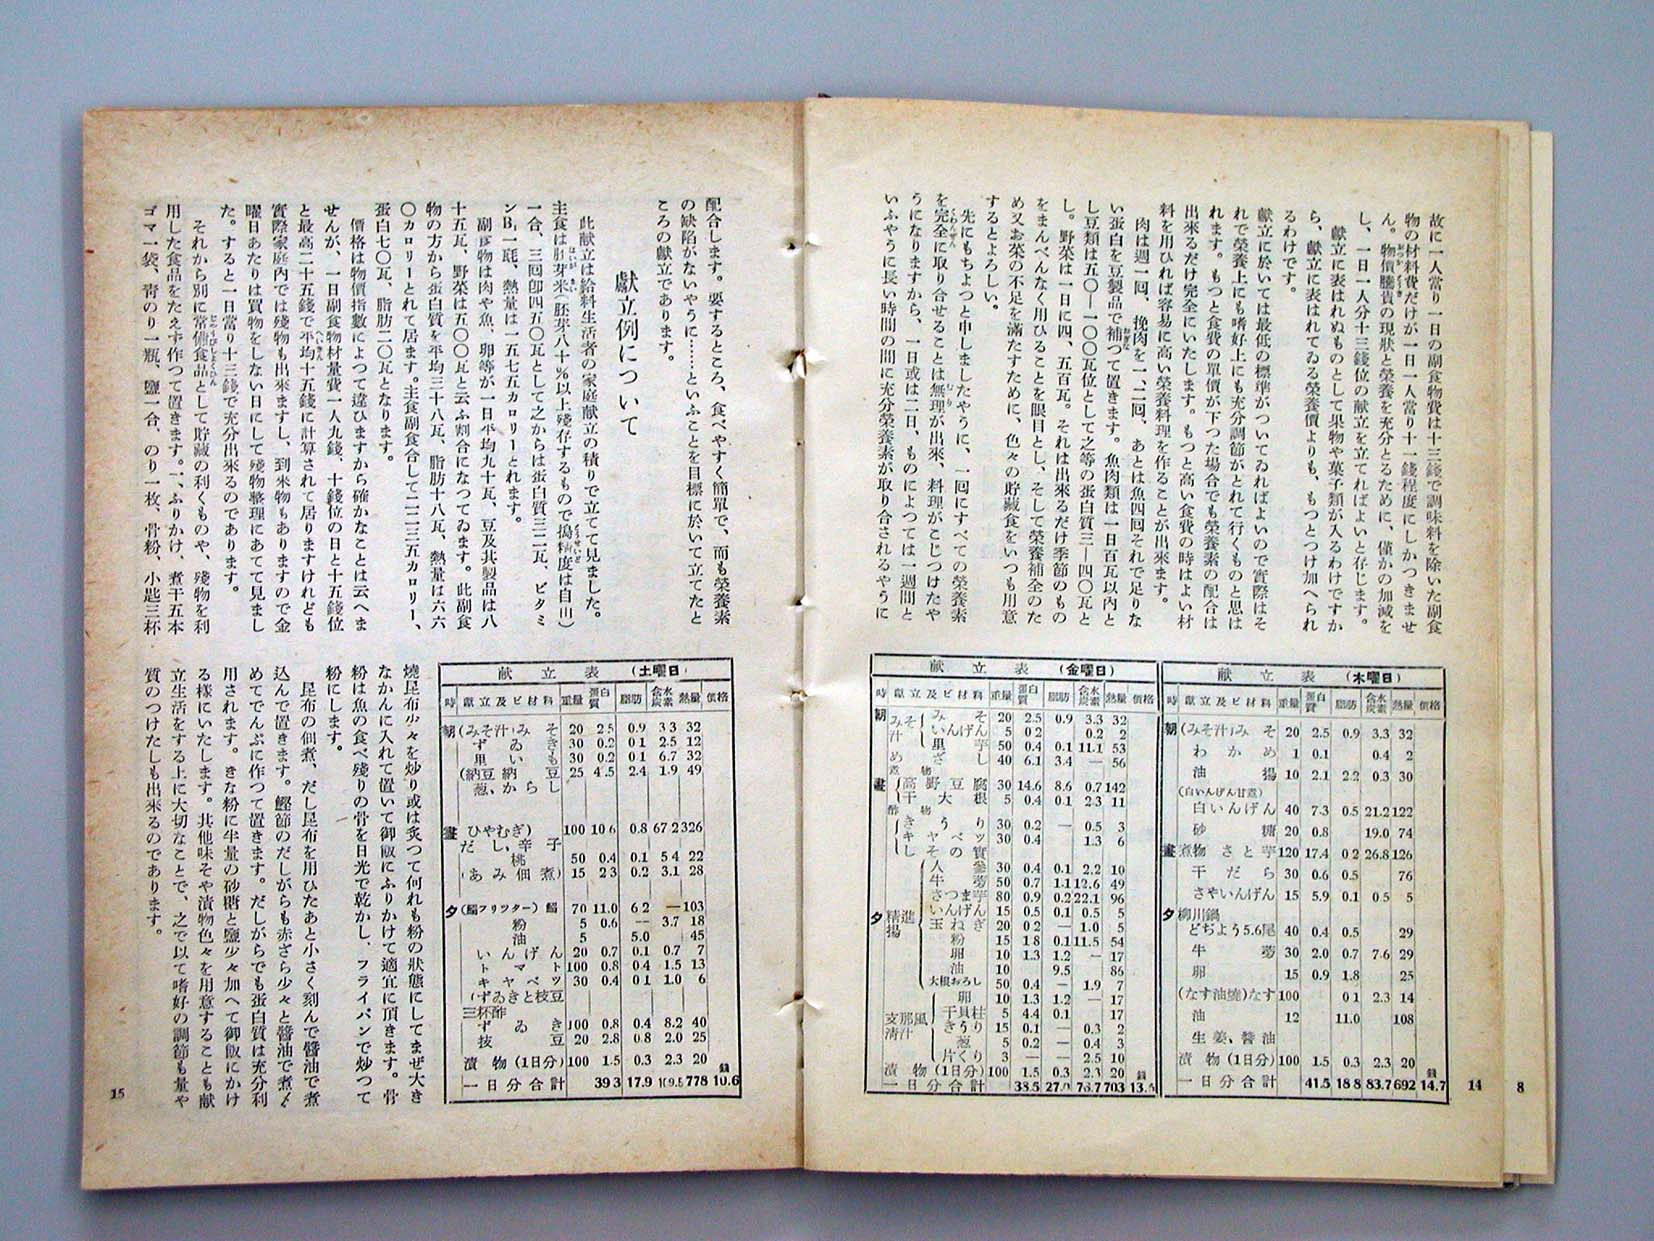 故に一人當り一日の副食物費は十三錢で調味料を除いた副食
物の材料費だけが一日一人當り十一錢程度にしかつきませ
ん。物價騰貴の現狀と榮養を充分とるために、僅かの加減を
し、一日一人分十三錢位の献立を立てればよいと存じます。
献立に表はれぬものとして果物や菓子類が入るわけですか
ら、献立に表はれてゐる榮養價よりも、もつとつけ加へられ
るわけです。
献立に於いては最低の標準がついてゐればよいので實際はそ
れで榮養上にも嗜好上にも充分調節がとれて行くものと思は
れます。もつと食費の單價が下つた場合でも榮養素の配合は
出來るだけ完全にいたします。もつと高い食費の時はよい材
料を用ひれば容易に高い榮養料理を作ることが出來ます。
肉は週一回、挽肉を一、二回、あとは魚四回それで足りな
い蛋白を豆製品で補つて置きます。魚肉類は一日百瓦以内と
し豆類は五〇―一〇〇瓦位として之等の蛋白質三―四〇瓦と
し。野菜は一日に四、五百瓦。それは出來るだけ季節のもの
をまんべんなく用ひることを眼目とし、そして榮養補全のた
め又お菜の不足を滿たすために、色々の貯藏食をいつも用意
するとよろしい。
先にもちよつと申しましたやうに、一回にすべての榮養素
を完全に取り合せることは無理が出來、料理がこじつけたや
うになりますから、一日或は二日、ものによつては一週間と
いふやうに長い時間の間に充分榮養素が取り合されるやうに
献立表 (木曜日)
時 献立及ビ材料 重量 蛋白質 脂肪 含水炭素 熱量 價格
朝 (みそ汁)みそ 20 2.5 0.9 3.3 32
わかめ 1 0.1 0.4 2
油揚 10 2.1 2.2 0.3 30
(白いんげん甘煮)
白いんげん 40 7.3 0.5 21.2 122
砂糖 20 0.8 19.0 74
晝 煮物 さと芋 120 17.4 0.2 26.8 126
干だら 30 0.6 0.5 76
さやいんげん 15 5.9 0.1 0.5 5
夕 柳川鍋
どぢよう5.6尾 40 0.4 0.5 29
牛蒡 30 2.0 0.7 7.6 29
卵 15 0.9 1.8 25
(なす油燒)なす 100 0.1 2.3 14
油 12 11.0 108
生姜、醬油
漬物(1日分) 100 1.5 0.3 2.3 20
一日分合計 41.5 18.8 83.7 692 錢 14.7
献立表 (金曜日)
時 献立及ビ材料 重量 蛋白質 脂肪 含水炭素 熱量 價格
朝 みそ汁 みそ 20 2.5 0.9 3.3 32
いんげん 20 0.2 0.2 2
里芋 50 0.4 0.1 11.1 53
めざし 40 6.1 3.4 — 56
晝 煮物 高野豆腐 30 14.6 8.6 0.7 142
干大根 5 0.4 0.1 2.3 11
酢物 きうり 30 0.2 — 0.5 3
キヤベツ 30 0.4 1.3 6
しその實
夕 精進揚 人參 30 0.4 0.1 2.2 10
牛蒡 50 0.7 1.1 12.6 49
さつま芋 80 0.9 0.2 22.1 96
いんげん 15 0.5 0.1 0.5 5
玉ねぎ 20 0.2 — 1.0 5
粉 15 1.8 0.1 11.5 54
卵 10 1.3 1.2 — 17
油 10 9.5 86
大根おろし 50 0.4 — 1.9 7
支那風淸汁 卵 10 1.3 1.2 — 17
干貝柱 5 4.4 0.1 17
きうり 15 0.1 — 0.3 2
葱 5 0.2 — 0.4 3
片くり 3 — — 2.5 10
漬物(1日分) 100 1.5 0.3 2.3 20
一日分合計 38.5 27.0 76.7 703 錢 13.5
14
8
配合します。要するところ、食べやすく簡單で、而も榮養素
の缺陷がないやうに……といふことを目標に於いて立てたと
ころの献立であります。
献立例について
此献立は給料生活者の家庭献立の積りで立てて見ました。
主食は胚芽米(胚芽八十%以上殘存するもので搗精度は自由)
一合、三回卽四五〇瓦として之からは蛋白質三二瓦、ビタミ
ンB₁一瓱、熱量は一五七五カロリーとれます。
副食物は肉や魚、卵等が一日平均九十瓦、豆及其製品は八
十五瓦、野菜は五〇〇瓦と云ふ割合になつてゐます。此副食
物の方から蛋白質を平均三十八瓦、脂肪十八瓦、熱量は六六
〇カロリーとれて居ります。主食副食合して二二三五カロリー、
蛋白七〇瓦、脂肪二〇瓦となります。
價格は物價指數によつて違ひますから確かなことは云へま
せんが、一日副食物材量費一人九錢、十錢位の日と十五錢位
と最高二十五錢で平均十五錢に計算されて居りますけれども
實際家庭内では殘物も出來ますし、到來物もありますので金
曜日あたりは買物をしない日にして殘物整理にあてて見まし
た。すると一日當り十三錢で充分出來るのであります。
それから別に常備食品として貯藏の利くものや、殘物を利
用した食品をたえず作つて置きます。一、ふりかけ、煮干五本
ゴマ一袋、靑のり一瓶、鹽一合、のり一枚、骨粉、小匙三杯
献立表 (土曜日)
時 献立及ビ材料 重量 蛋白質 脂肪 含水炭素 熱量 價格
朝 (みそ汁)みそ 20 2.5 0.9 3.3 32
ずゐき 30 0.2 0.1 2.5 12
里いも 30 0.2 0.1 6.7 32
(納豆)納豆 25 4.5 2.4 1.9 49
葱、からし
晝 ひやむぎ) 100 10.6 0.8 67.2 326
だし、辛子
桃 50 0.4 0.1 5.4 22
(あみ佃煮) 15 2.3 0.2 3.1 28
夕 (鯔フリツター)鯔 70 11.0 6.2 — 103
粉 5 0.6 — 3.7 18
油 5 5.0 45
いんげん 20 0.7 0.1 0.7 7
トマト 100 0.8 0.4 1.5 13
キヤベツ 30 0.4 0.1 1.0 6
(ずゐきと枝豆
三杯酢
ずゐき 100 0.8 0.4 8.2 40
枝豆 20 2.8 0.8 2.0 25
漬物(1日分) 100 1.5 0.3 2.3 20
一日分合計 39.3 17.9 109.5 778 錢 10.6
燒昆布少々を炒り或は炙つて何れも粉の狀態にしてまぜ大き
なかんに入れて置いて御飯にふりかけて適宜に頂きます。骨
粉は魚の食べ殘りの骨を日光で乾かし、フライパンで炒つて
粉にします。
昆布の佃煮、だし昆布を用ひたあと小さく刻んで醬油で煮
込んで置きます。鰹節のだしがらも赤ざら少々と醬油で煮〆
めてでんぶに作つて置きます。だしがらでも蛋白質は充分利
用されます。きな粉に半量の砂糖と鹽少々加へて御飯にかけ
る樣にいたします。其他味そや漬物色々を用意することも献
立生活をする上に大切なことで、之で以て嗜好の調節も量や
質のつけたしも出來るのであります。
15